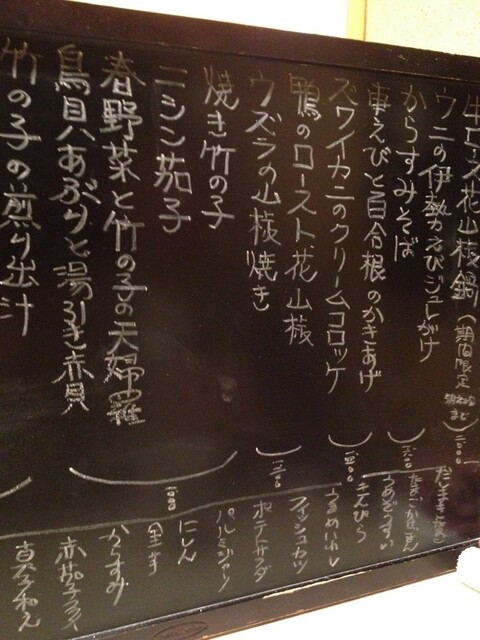 牛ロース花山椒鍋（期間限定
まで
ウニの伊勢えびジュレがけ
からすみそば
車えびと百合根のかきあげ
ズワイカニのクリームコロッケ
鴨のロースト花山椒
ウズラの山椒焼き
焼き竹の子
ニシン茄子
春野菜と竹の子の天婦羅
鳥貝八あぶりと湯引き赤貝
竹の子の煎り出汁
きんぴら
うるめいわし
フィッシュカツ
ポテトサラダ
パルミジャーノ
にしん
からすみ
赤茄子スライ
真子和え